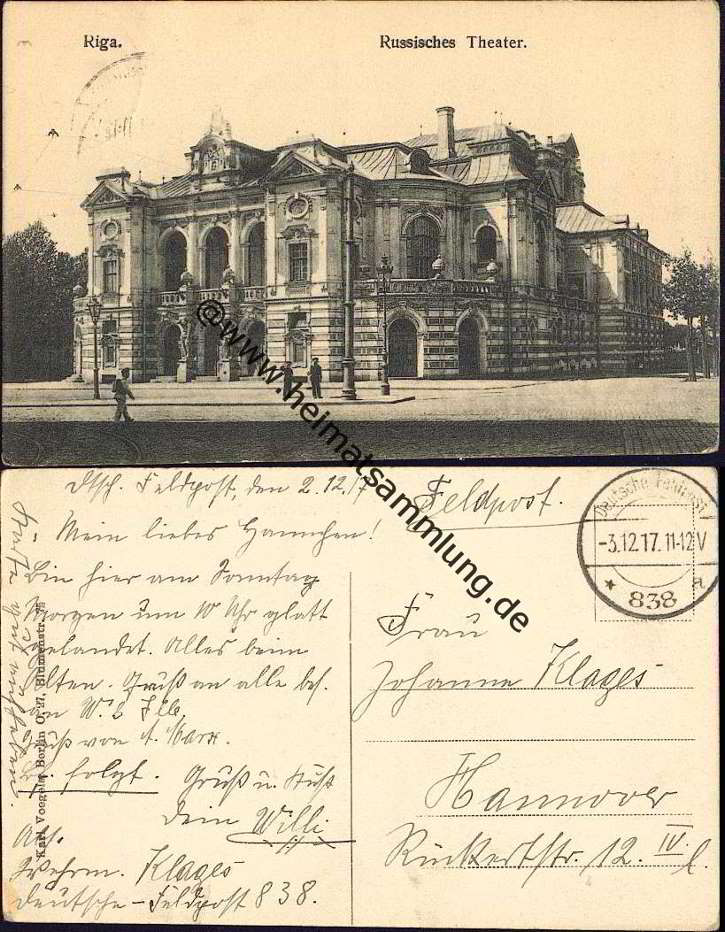 Riga.
Russisches Theater.
@www.heimatsammlung.de
Dtsch. Feldpost, den 2.12.17
Feldpost.
Deutsche Feldpost
-3.12.17. 11-12 V
* 838 a
Mein liebes Hannchen!
Bin hier am Sonntag
Morgen um 10 Uhr glatt
gelandet. Alles beim
Alten. Gruß an alle bes.
an W.
Gruß von A. Marx.
folgt.
Gruß u. Kuß
Dein Willi
Abs.
Wehrm. Klages
Deutsche-Feldpost 838.
Karl Voegels, Berlin O. 27, Blumenstr. 75
Frau
Johanne Klages
Hannover
Rückertstr. 12. IV. l.